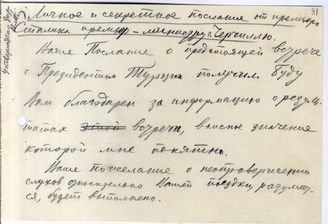 91
Личное и секретное послание от премьера
Сталина премьер-министру г. Черчиллю.
Ваше Послание о предстоящей встрече
с Президентом Турции получил. Буду
Вам благодарен за информацию о резуль-
татах встречи, важное значение
которой мне понятно.
Ваше пожелание о неопровержении
слухов относительно Вашей поездки, разумеет-
ся, будет выполнено.